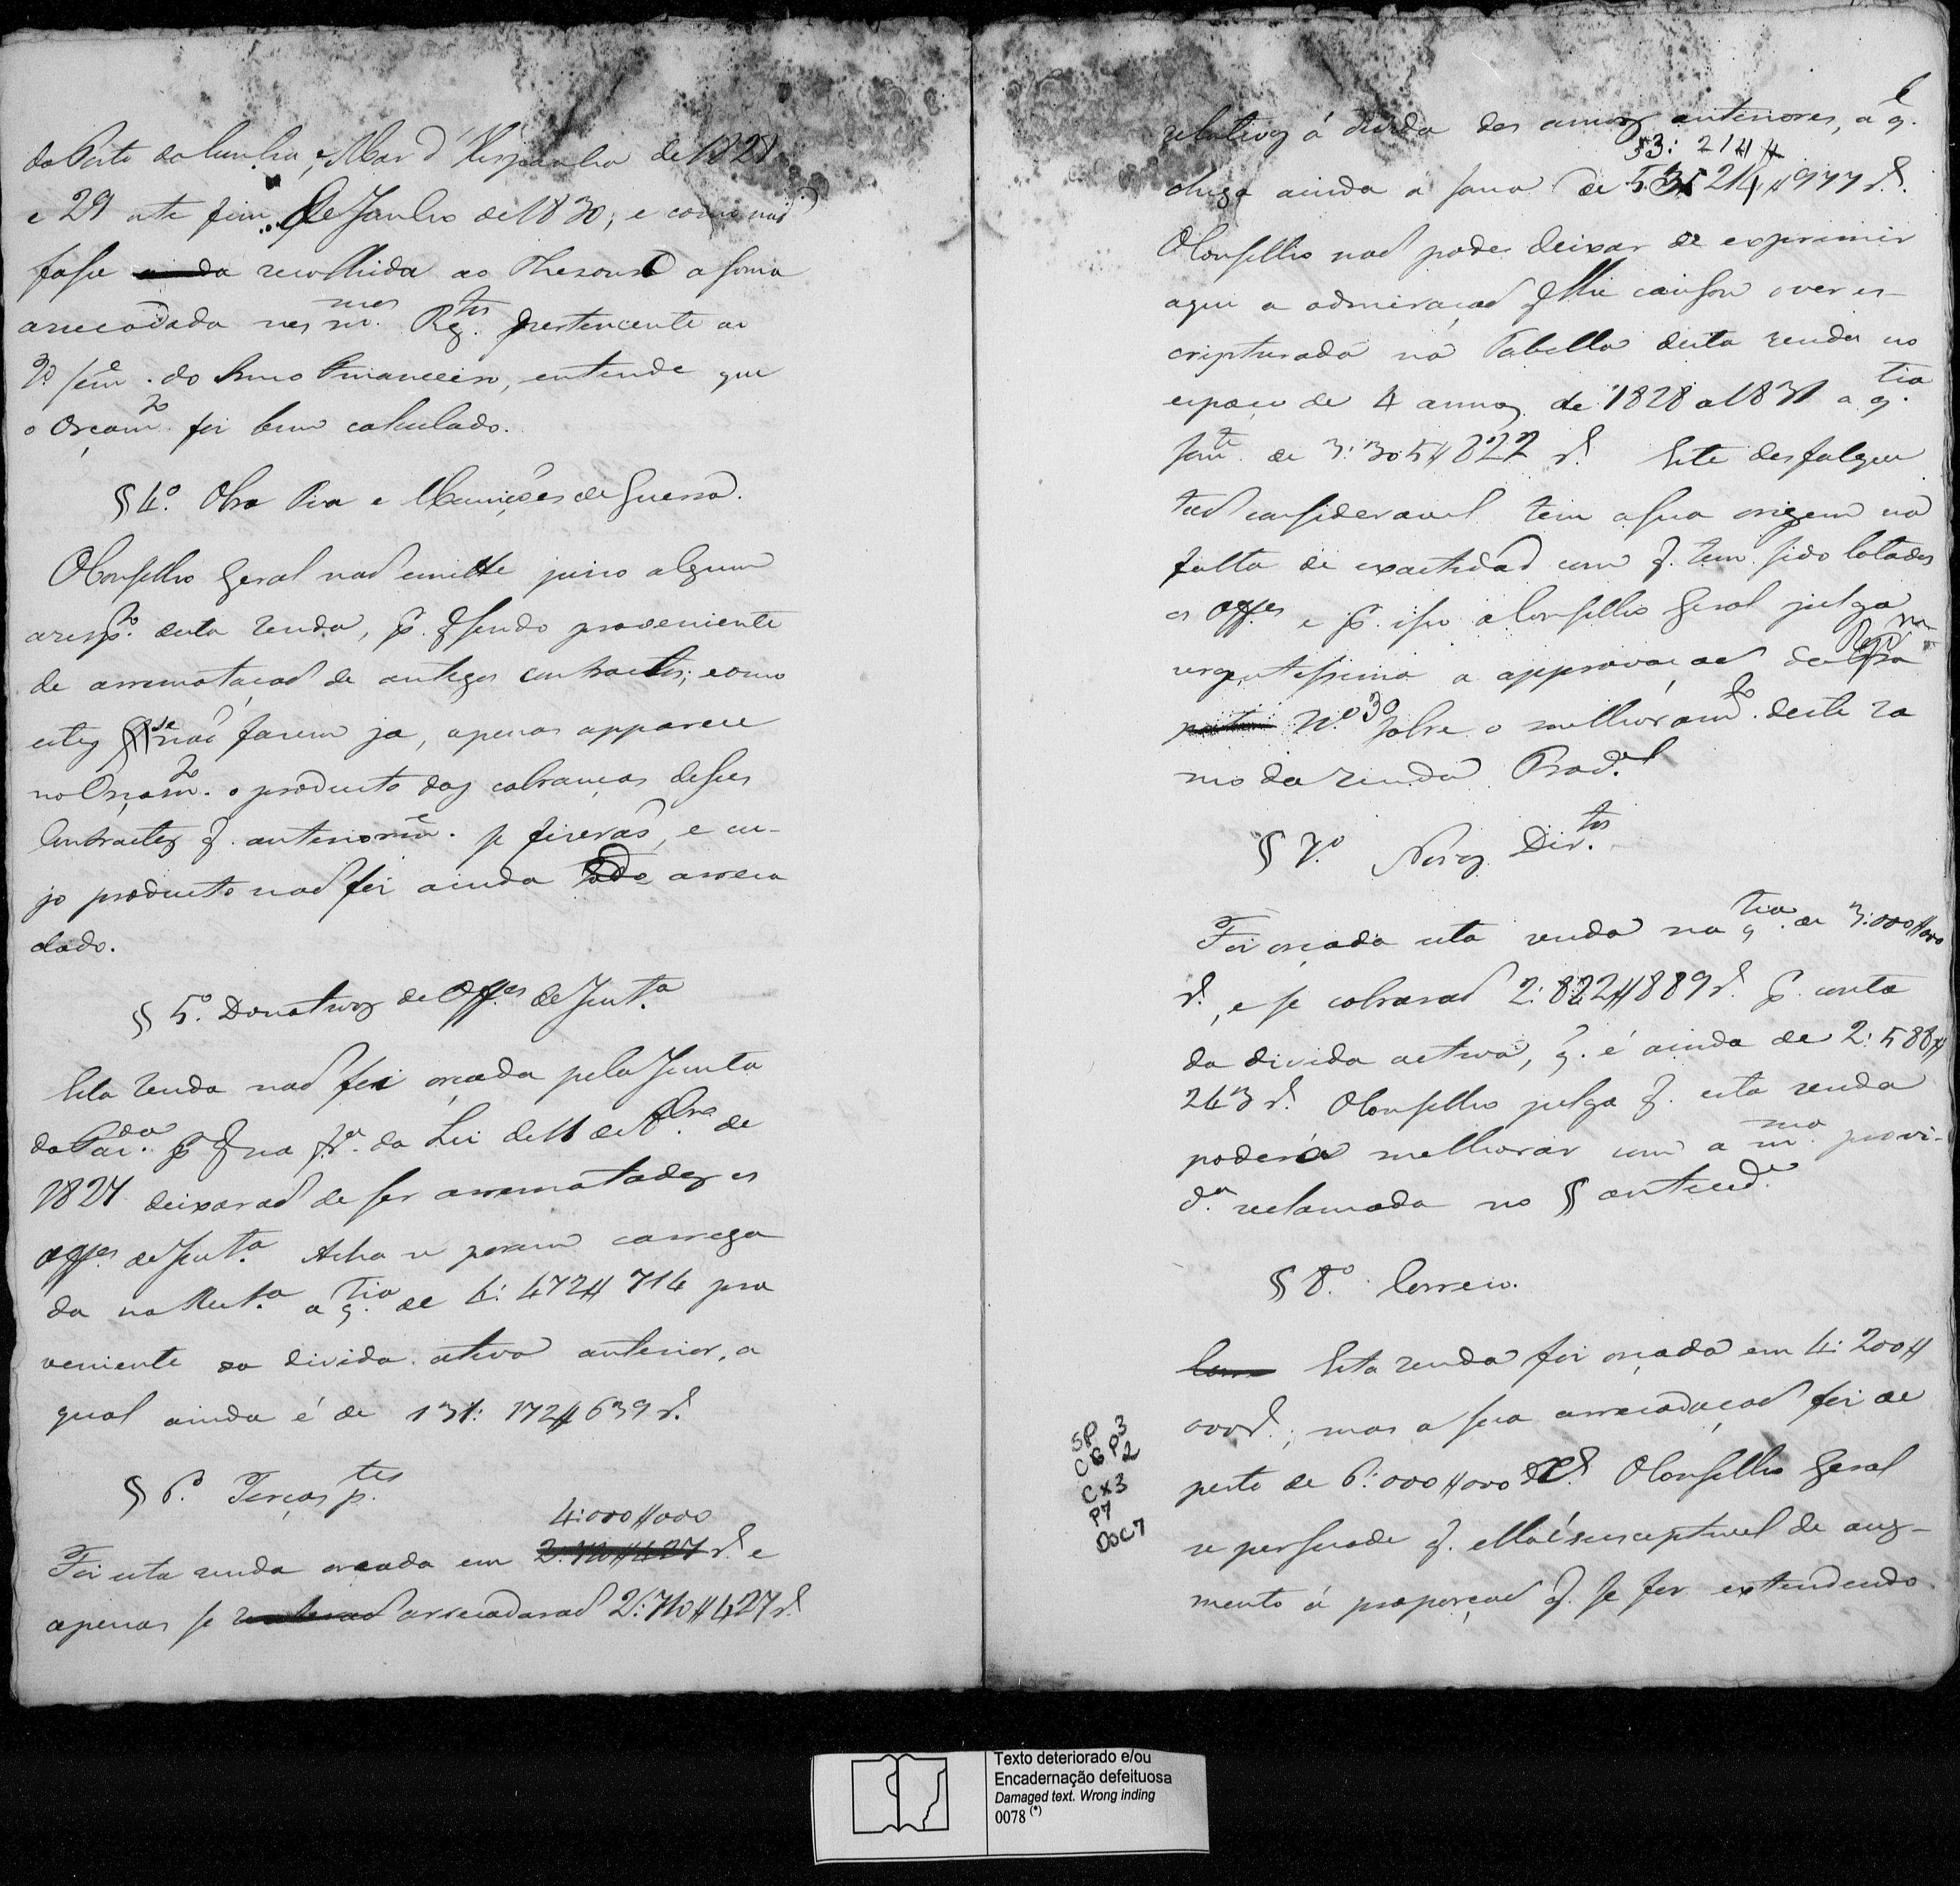 do Porto do Cunha, e Mar d'Hespanha de 1828
e 29 ate fim de Junho de 1830; e como não
fosse ainda recolhida ao Thesouro a soma
arrecadada nos m.mos Reg.tos pertencente ao
2º sem.e do Anno Financeiro, entende que
o Orçam.to foi bem calculado.
§ 4º. Obra Pia e Munições de Guerra.
O Conselho Geral não emitte juiso algum
a resp.to desta renda, p. q sendo proveniente
de arrematação de antigos contractos; como
estes se não fasem ja, apenas apparece
no Orçam.to o producto das cobranças desses
Contractos q. anteriorm.e se fiserão, e cu-
jo producto não foi ainda todo arreca
dado.
§ 5º. Donativos de Off.es de Just.a
Esta renda não foi orçada pela Junta
da Faz.da p q na f.a da Lei de 11 de 8.bro de
1827 deixarão de ser arrematados os
off.es de Just.a Acha-se porem carrega
da na Rect.a a q.tia de 4:472#714 pro
veniente da divida activa anterior, a
qual ainda é de 131:172#639 r.s
§ 6º. Terças p.tes
4:000#000
Foi esta renda orçada em 2:710#427 r.s e
apenas se arrecadarão 2:710#427 r.s
relativos á divida dos annos anteriores, a q.
53:214#
chega ainda a soma de 53:214#977 r.s.
O Conselho não pode deixar de exprimir
aqui a admiração q lhe causou o ver es-
cripturada na Tabella desta renda no
espaço de 4 annos de 1828 a 1831 a q.tia
som.te de 3:305#822 r.s Este desfalque
tão consideravel tem a sua origem na
falta de exactidão com q. tem sido lotados
os off.es e p. isso o Conselho Geral julga
urgentissima a approvação da
N.º 3º sobre o melhoram.to deste ra
mo da renda Prov.al
§ 7º Novos Dir.tos
Foi orçada esta renda na q.tia de 3:000#000
r.s, e se cobrarão 2:822#889 r.s p. conta
da divida activa, q. é ainda de 2:588#
243 r.s O Conselho julga q. esta renda
poderá melhorar com a m.ma provi-
d.a reclamada no § anteced.e
§ 8º. Correio.
Corr Esta renda foi orçada em 4:200#
000 r.s; mas a sua arrecadação foi de
perto de 6:000#000 de r.s O Conselho Geral
se persuade q. ella é susceptivel de aug-
mento á proporção q. se for extendendo
SP
CG P3
CX3 P2
P7
DOC7
Texto deteriorado e/ou
Encadernação defeituosa
Damaged text. Wrong inding
0078 (*)